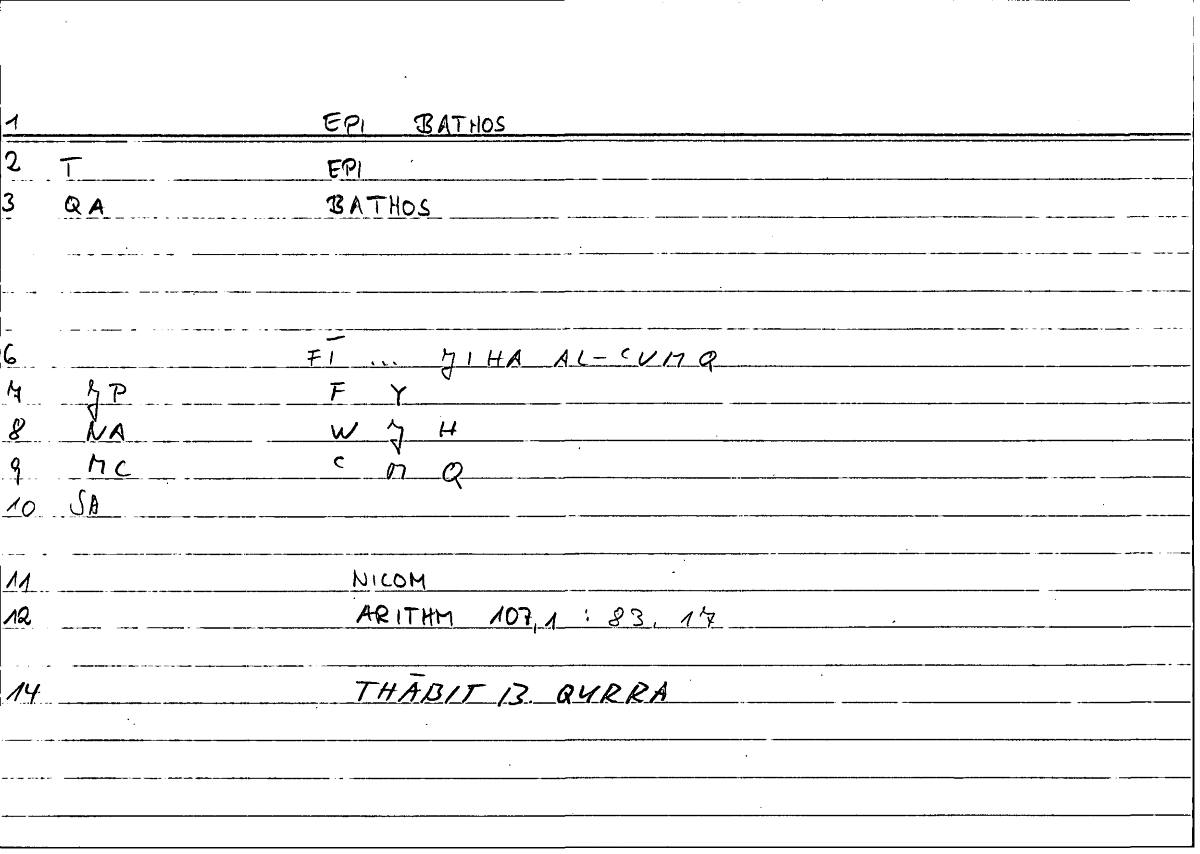 1 EPI BATHOS
2 T EPI
3 QA BATHOS
6 FĪ ... JIHA AL-CUMQ
7 JP F Y
8 NA W J H
9 MC C M Q
10 SA
11 NICOM
12 ARITHM 107,1 : 83. 17
14 THĀBIT B. QURRA